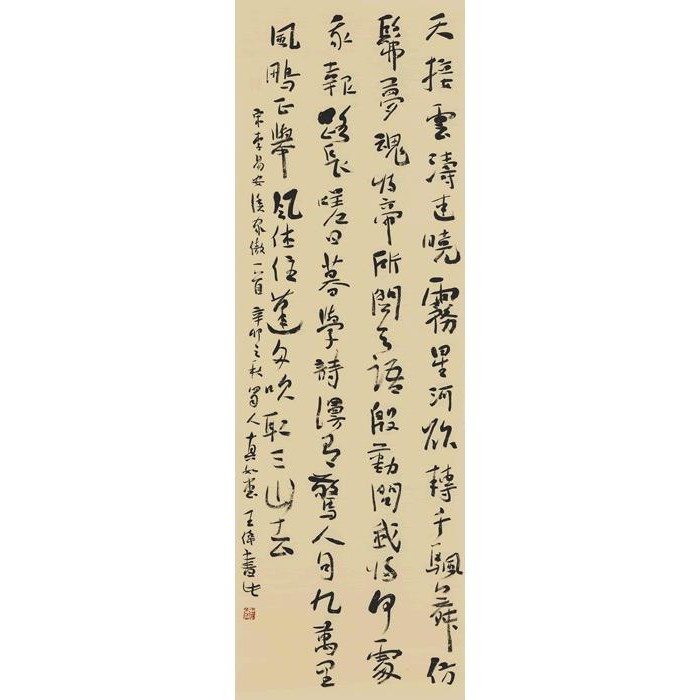 天接雲濤連曉霧星河欲轉千颿舞仿
髴夢魂歸帝所聞天語殷勤問我歸何處
我報路長嗟日暮學詩漫有驚人句九萬里
風鵬正舉風休住蓬舟吹取三山去
宋李易安漁家傲一首辛卯之秋蜀人真如王偉書